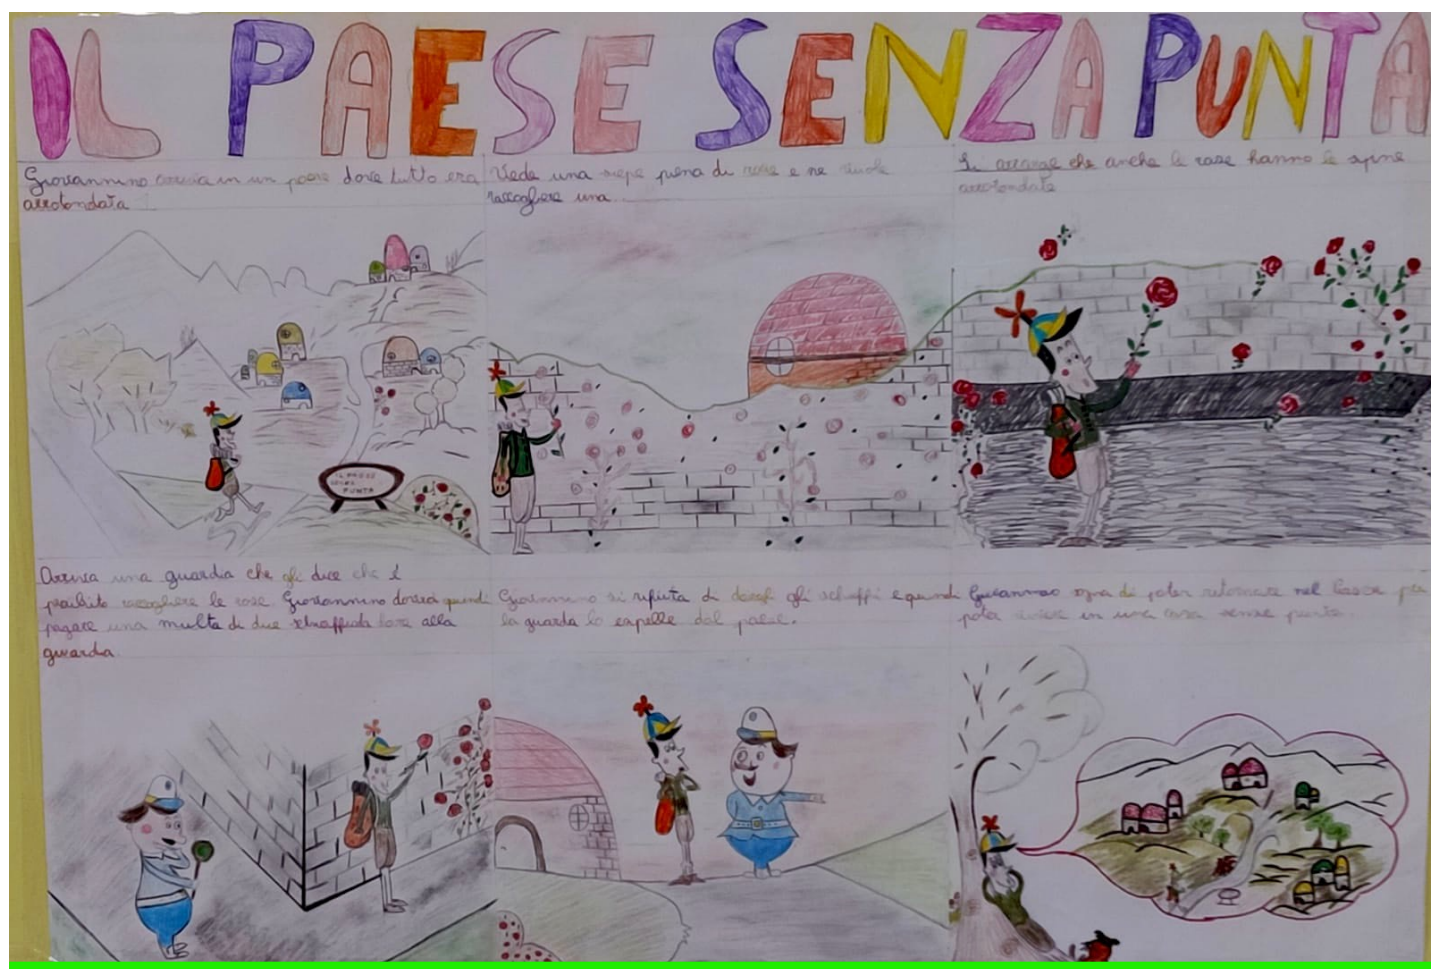 IL PAESE SENZA PUNTA
Giovannino arriva in un paese dove tutto era
arrotondata
Vede una siepe piena di rose e ne vuole
raccogliere una
Si accorge che anche le rose hanno le spine
arrotondate
IL PAESE
SENZA
PUNTA
Arriva una guardia che gli dice che è
proibito raccogliere le rose. Giovannino dovrà quindi
pagare una multa di due alla
guardia
Giovannino si rifiuta di dargli gli schiaffi e quindi
la guarda lo espelle dal paese.
Giovannino sogna di poter ritornare nel per
poter vivere in una casa senza punta.